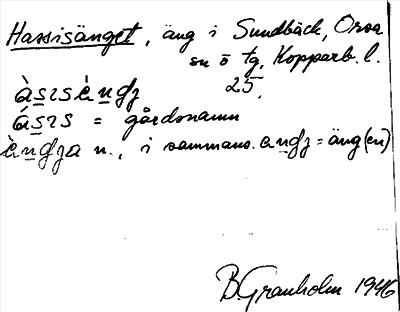 Hassisänget, äng i Sundbäck, Orsa
sn ö tg, Kopparb. l.
25.
àsısèndȝ
ásıs = gårdsnamn
èndȝa n., i sammans. andȝ = äng(en)
B. Granholm 1946